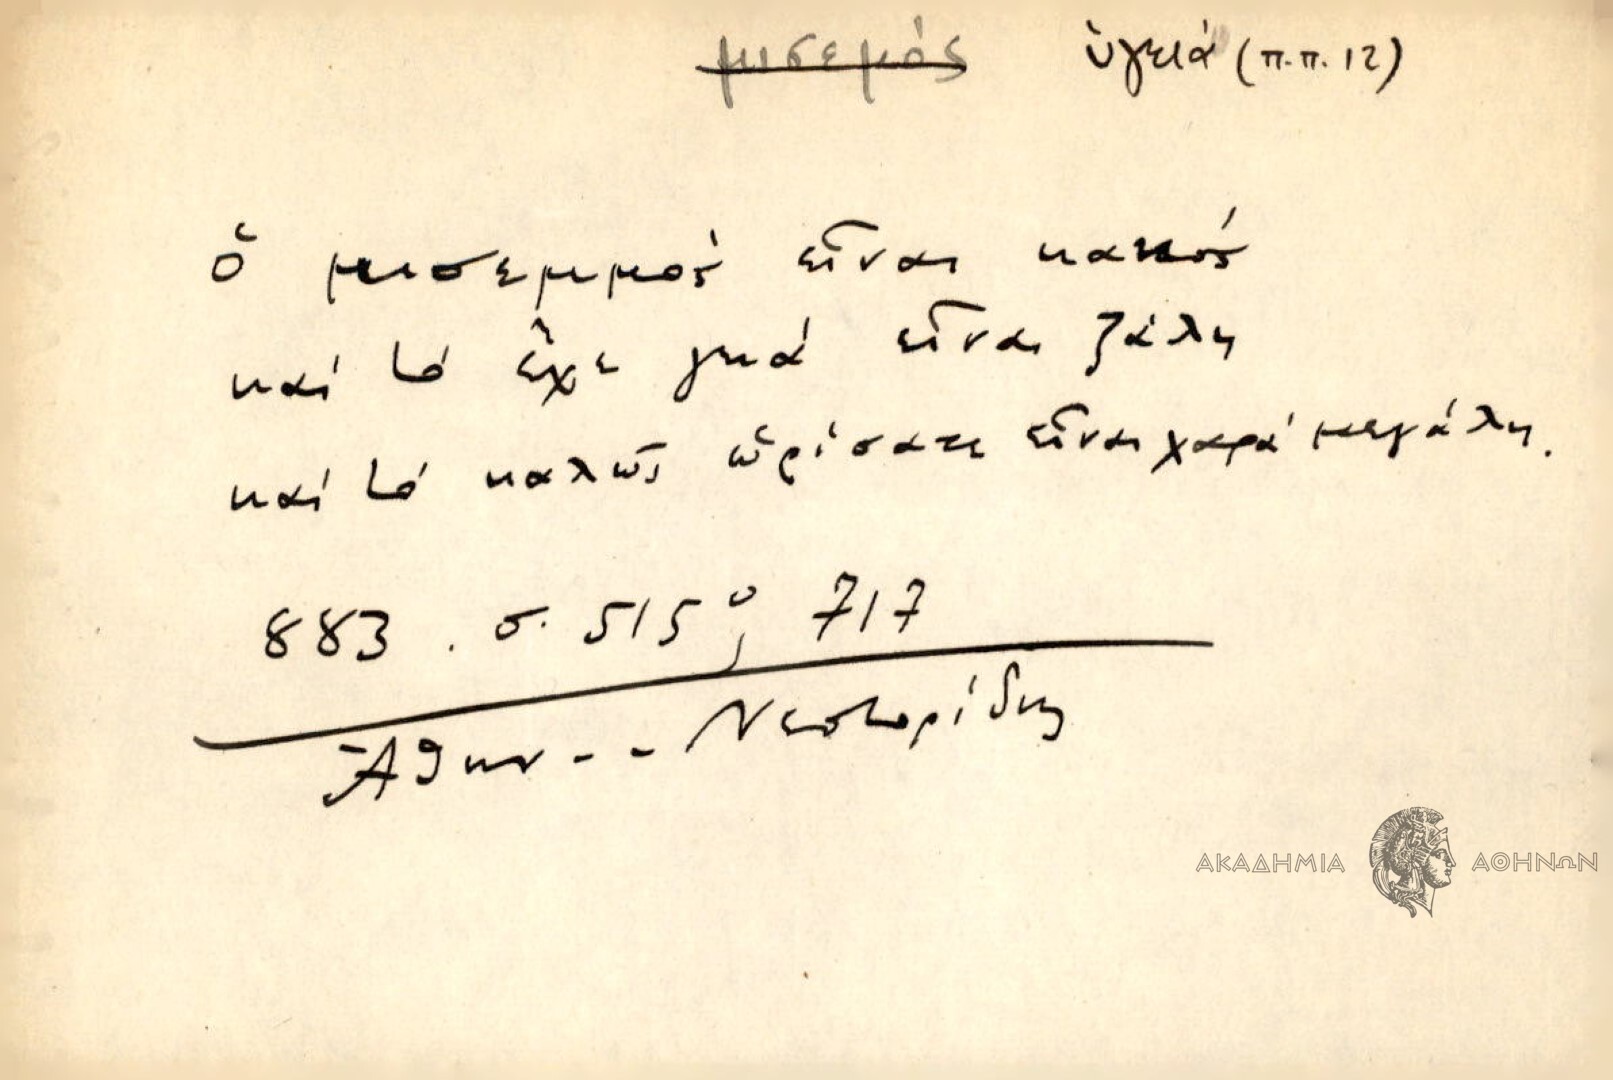 μισεμός ὑγειά (π.π. 12)
ὁ μισεμμός εἶναι κακός
καί τό ἔχε γειά εἶναι ζάλη
καί τό καλῶς ὡρίσατε εἶναι χαρά μεγάλη.
883. σ. 515, 717
Ἀθην - - Νεστορίδης
ΑΚΑΔΗΜΙΑ ΑΘΗΝΩΝ